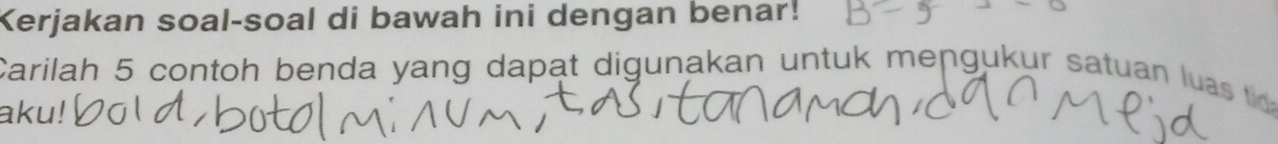 Kerjakan soal-soal di bawah ini dengan benar! B-5
Carilah 5 contoh benda yang dapat digunakan untuk mengukur satuan luas tida
aku! bola, botol minum, tas, tanaman, dan meja